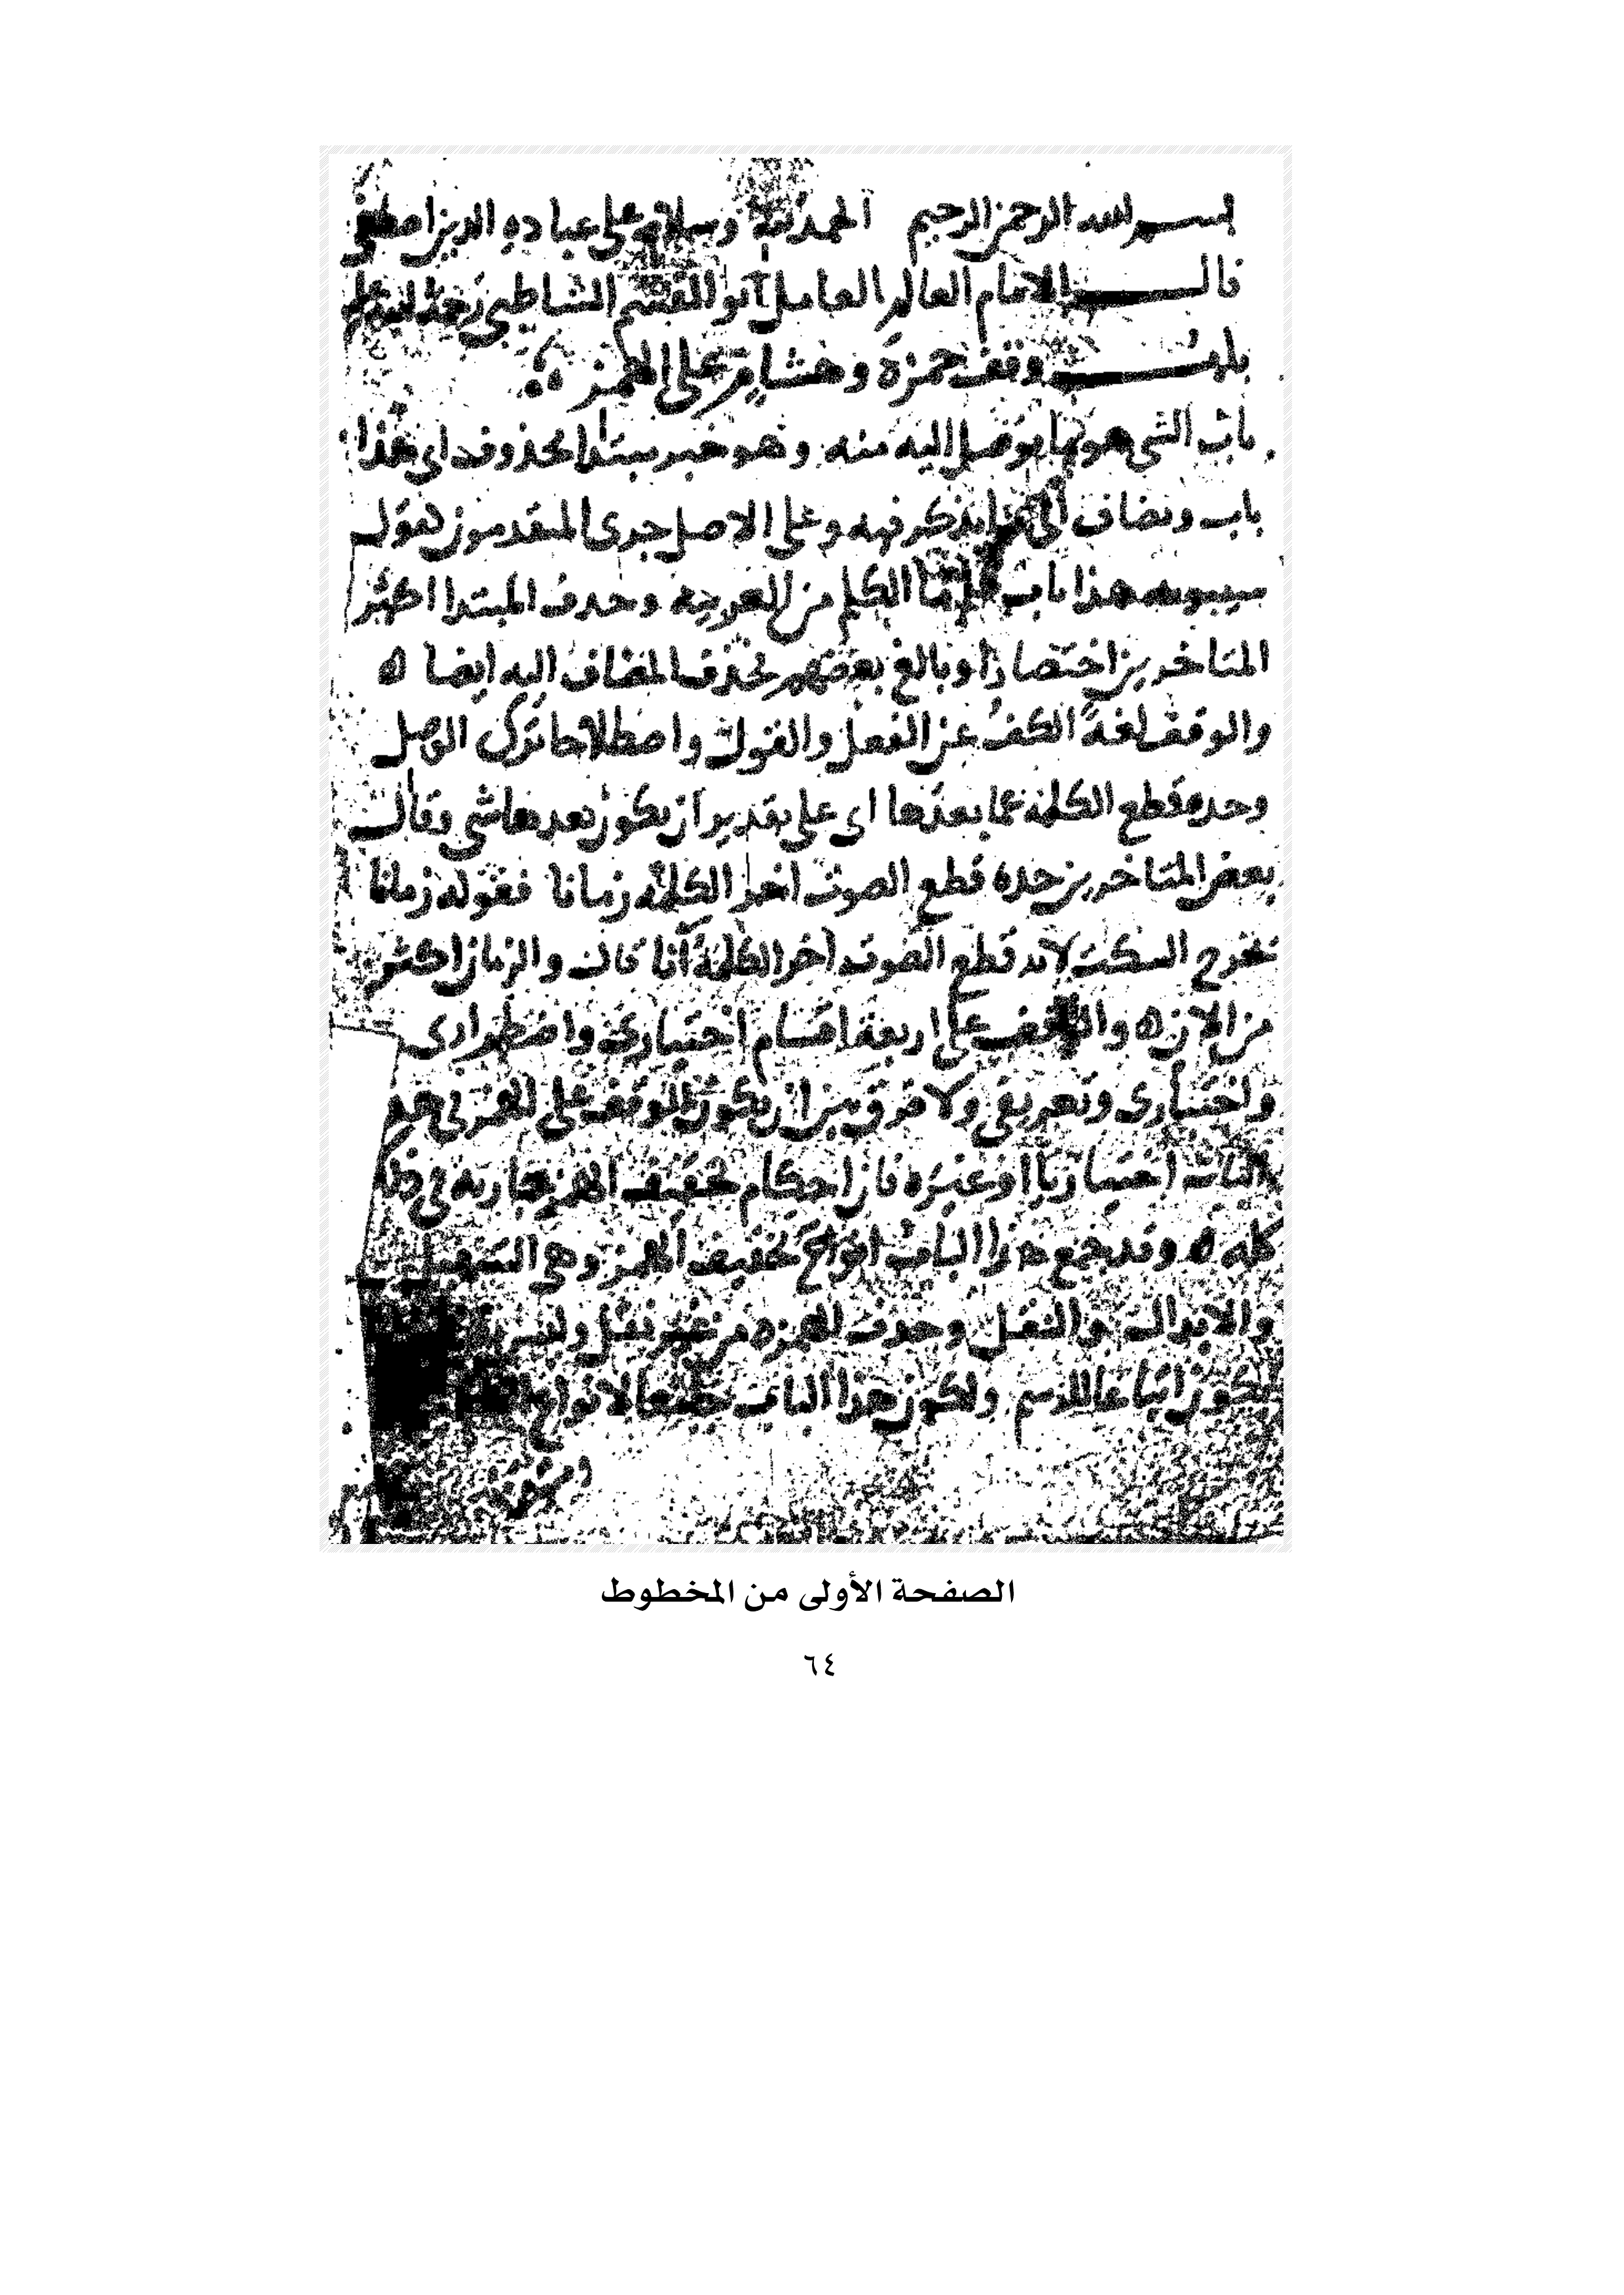 بسم الله الرحمن الرحيم الحمد لله وسلام على عباده الذين اصطفى
قال الامام العالم العامل ابو القسم الشاطبي رحمة الله عليه
باب وقف حمزة وهشام على الهمز
باب الشي هو ما يوصل اليه منه وهو خبر مبتدا محذوف اي هذا
باب ويضاف الى ما يذكر فيه وعلى الاصل جرى المتقدمون كقول
سيبويه هذا باب علم ما الكلم من العربية وحذف المبتدا اكثر
المتاخرين اختصارا وبالغ بعضهم فحذف المضاف اليه ايضا ه
والوقف لغة الكف عن الفعل والقول واصطلاحا ترك الوصل
وحده قطع الكلمة عما بعدها اي على تقدير ان يكون بعدها شي وقال
بعض المتاخرين حده قطع الصوت اخر الكلمة زمانا فقوله زمانا
تخرج السكت لانه قطع الصوت اخر الكلمة آنا قال والزمان اكثر
من الان ه والوقف على اربعة اقسام اختياري واضطراري
واختباري وتعريفي ولا فرق بين ان يكون الوقف على الهمز في هذا
الباب اختياريا او غيره فان احكام تخفيف الهمز جارية في ذلك
كله ه وقد جمع هذا الباب انواع تخفيف الهمز وهي التسهيل
والابدال والنقل وحذف الهمزة من غير نقل
اتباعا للرسم ولكون هذا الباب جامعا لانواع
الصفحة الأولى من المخطوط
٦٤